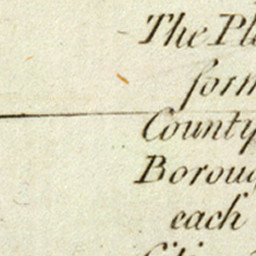 The Pl
form
County
Boroug
each